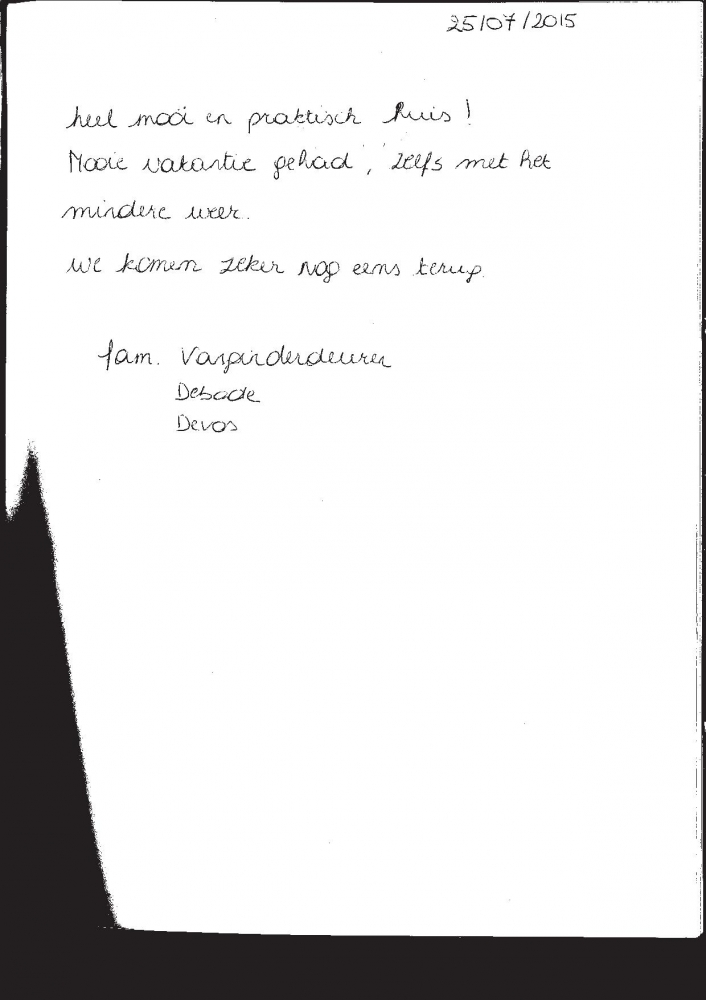 25/07/2015
heel mooi en praktisch huis!
Mooie vakantie gehad, zelfs met het
mindere weer.
We komen zeker nog eens terug.
fam.
Devos